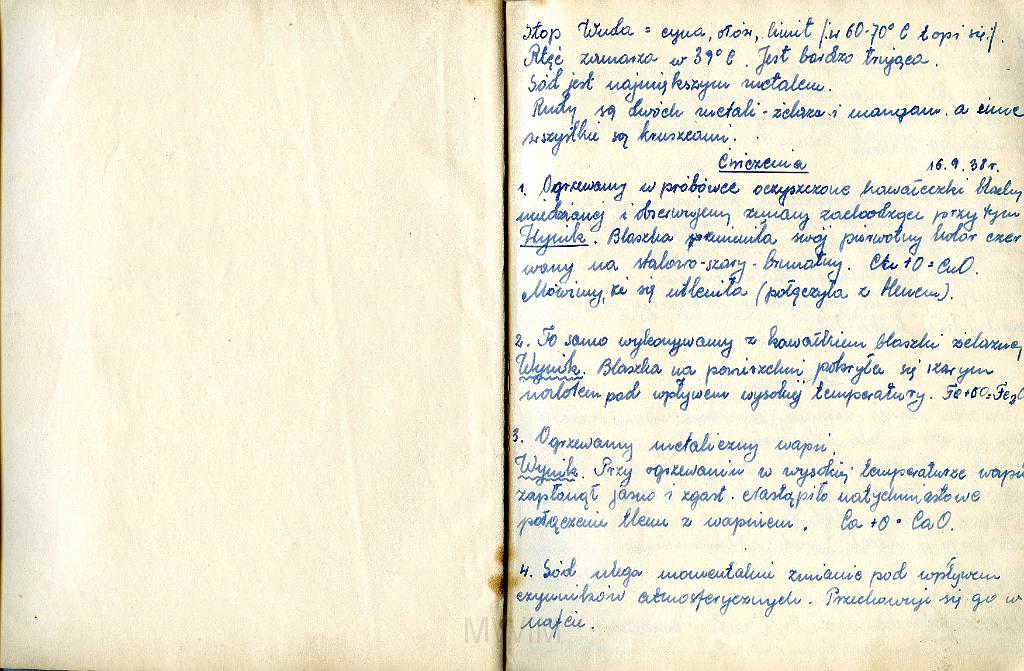 Stop Wuda = cyna, ołów, bizmut /: w 60-70° C topi się :/.
Rtęć zamarza w 39° C. Jest bardzo trująca.
Sód jest najmiększym metalem.
Rudy są dwóch metali - żelaza i mangan. a inne
wszystkie są kruszcami.
Ćwiczenia 16.9.38r.
1. Ogrzewamy w probówce oczyszczone kawałeczki blachy
miedzianej i obserwujemy zmiany zachodzące przy tym
Wynik. Blaszka zmieniła swój pierwotny kolor czer
wony na stalowo-szary-brunatny. Cu + O = CuO.
Mówimy, że się utleniła (połączyła z tlenem).
2. To samo wykonywamy z kawałkiem blaszki żelaznej
Wynik. Blaszka na powierzchni pokryła się szarym
nalotem pod wpływem wysokiej temperatury.
3. Ogrzewamy metaliczny wapń.
Wynik. Przy ogrzewaniu w wysokiej temperaturze wapń
zapłonął jasno i zgasł. Nastąpiło natychmiastowe
połączenie tlenu z wapniem. Ca + O = CaO.
4. Sód ulega momentalnie zmianie pod wpływem
czynników atmosferycznych. Przechowuje się go w
nafcie.
MWIM